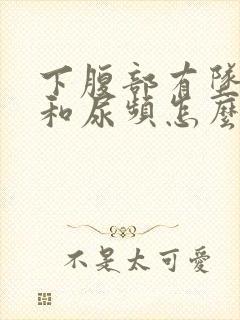 下腹部有墜
和尿頻怎麼
不是太可愛